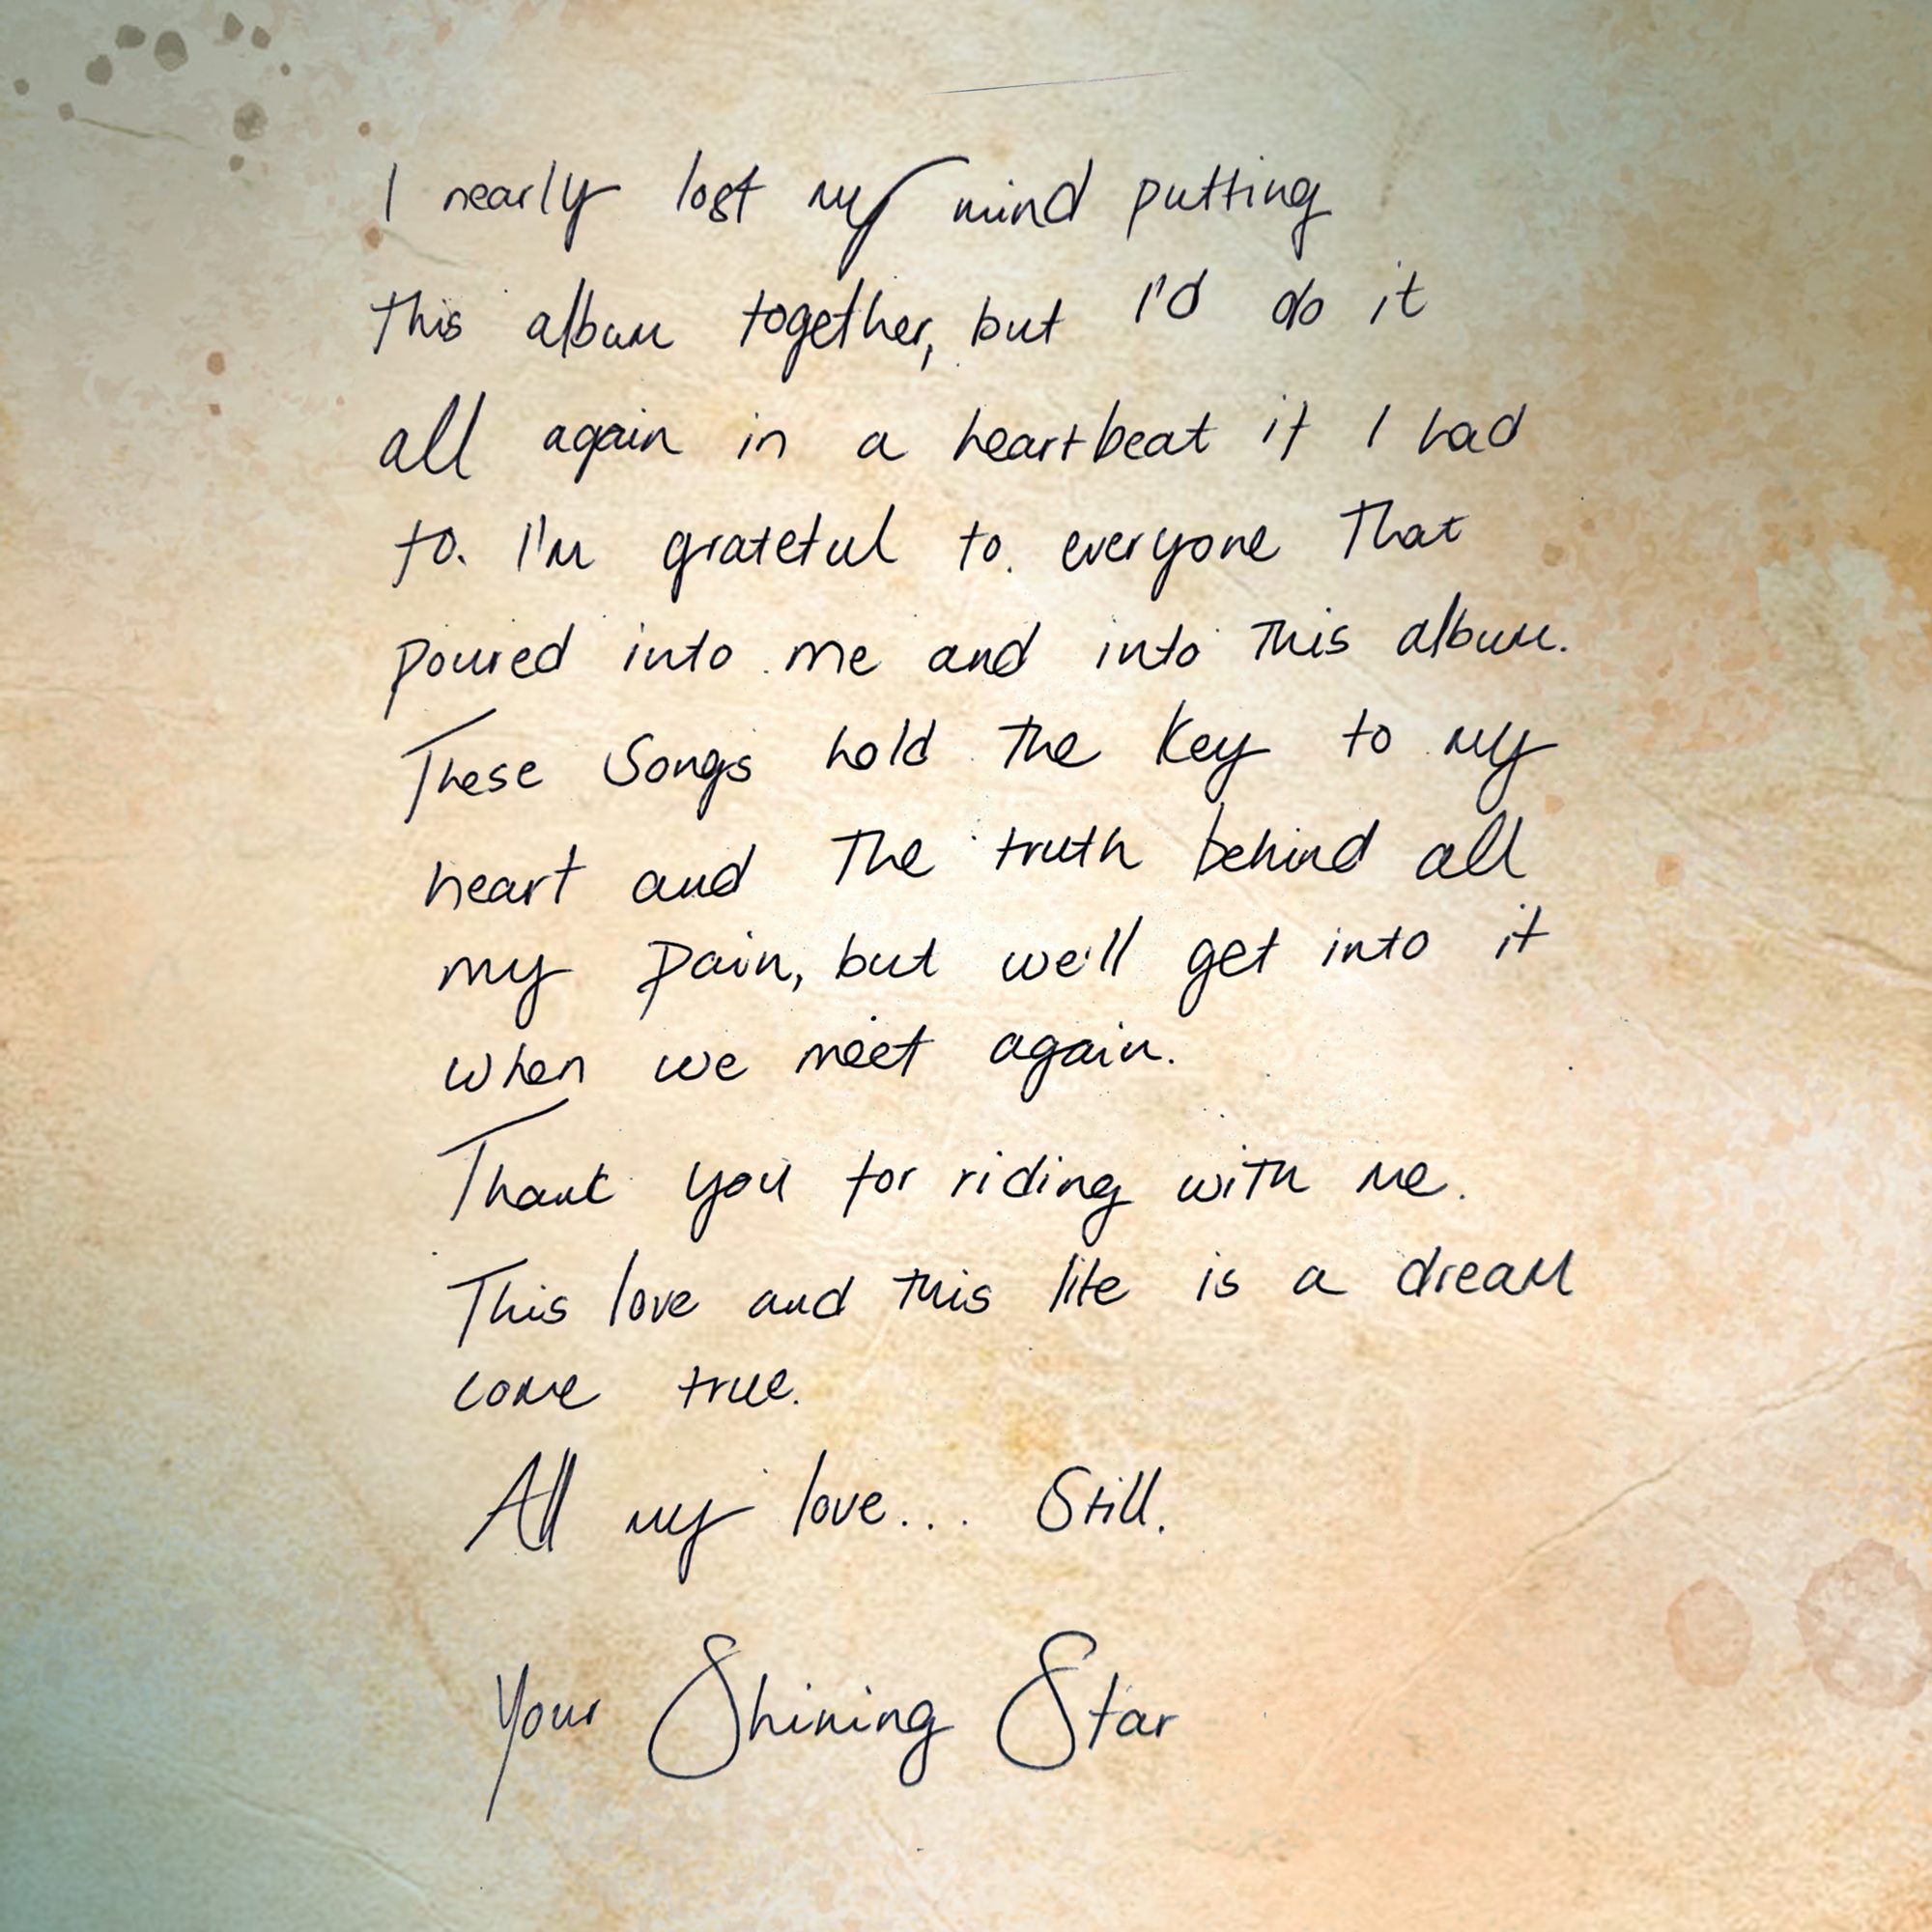 I nearly lost my mind putting
this album together, but I'd do it
all again in a heartbeat if I had
to. I'm grateful to everyone that
poured into me and into this album.
These Songs hold the key to my
heart and the truth behind all
my pain, but we'll get into it
when we meet again.
Thank you for riding with me.
This love and this life is a dream
come true.
All my love... Still.
Your Shining Star